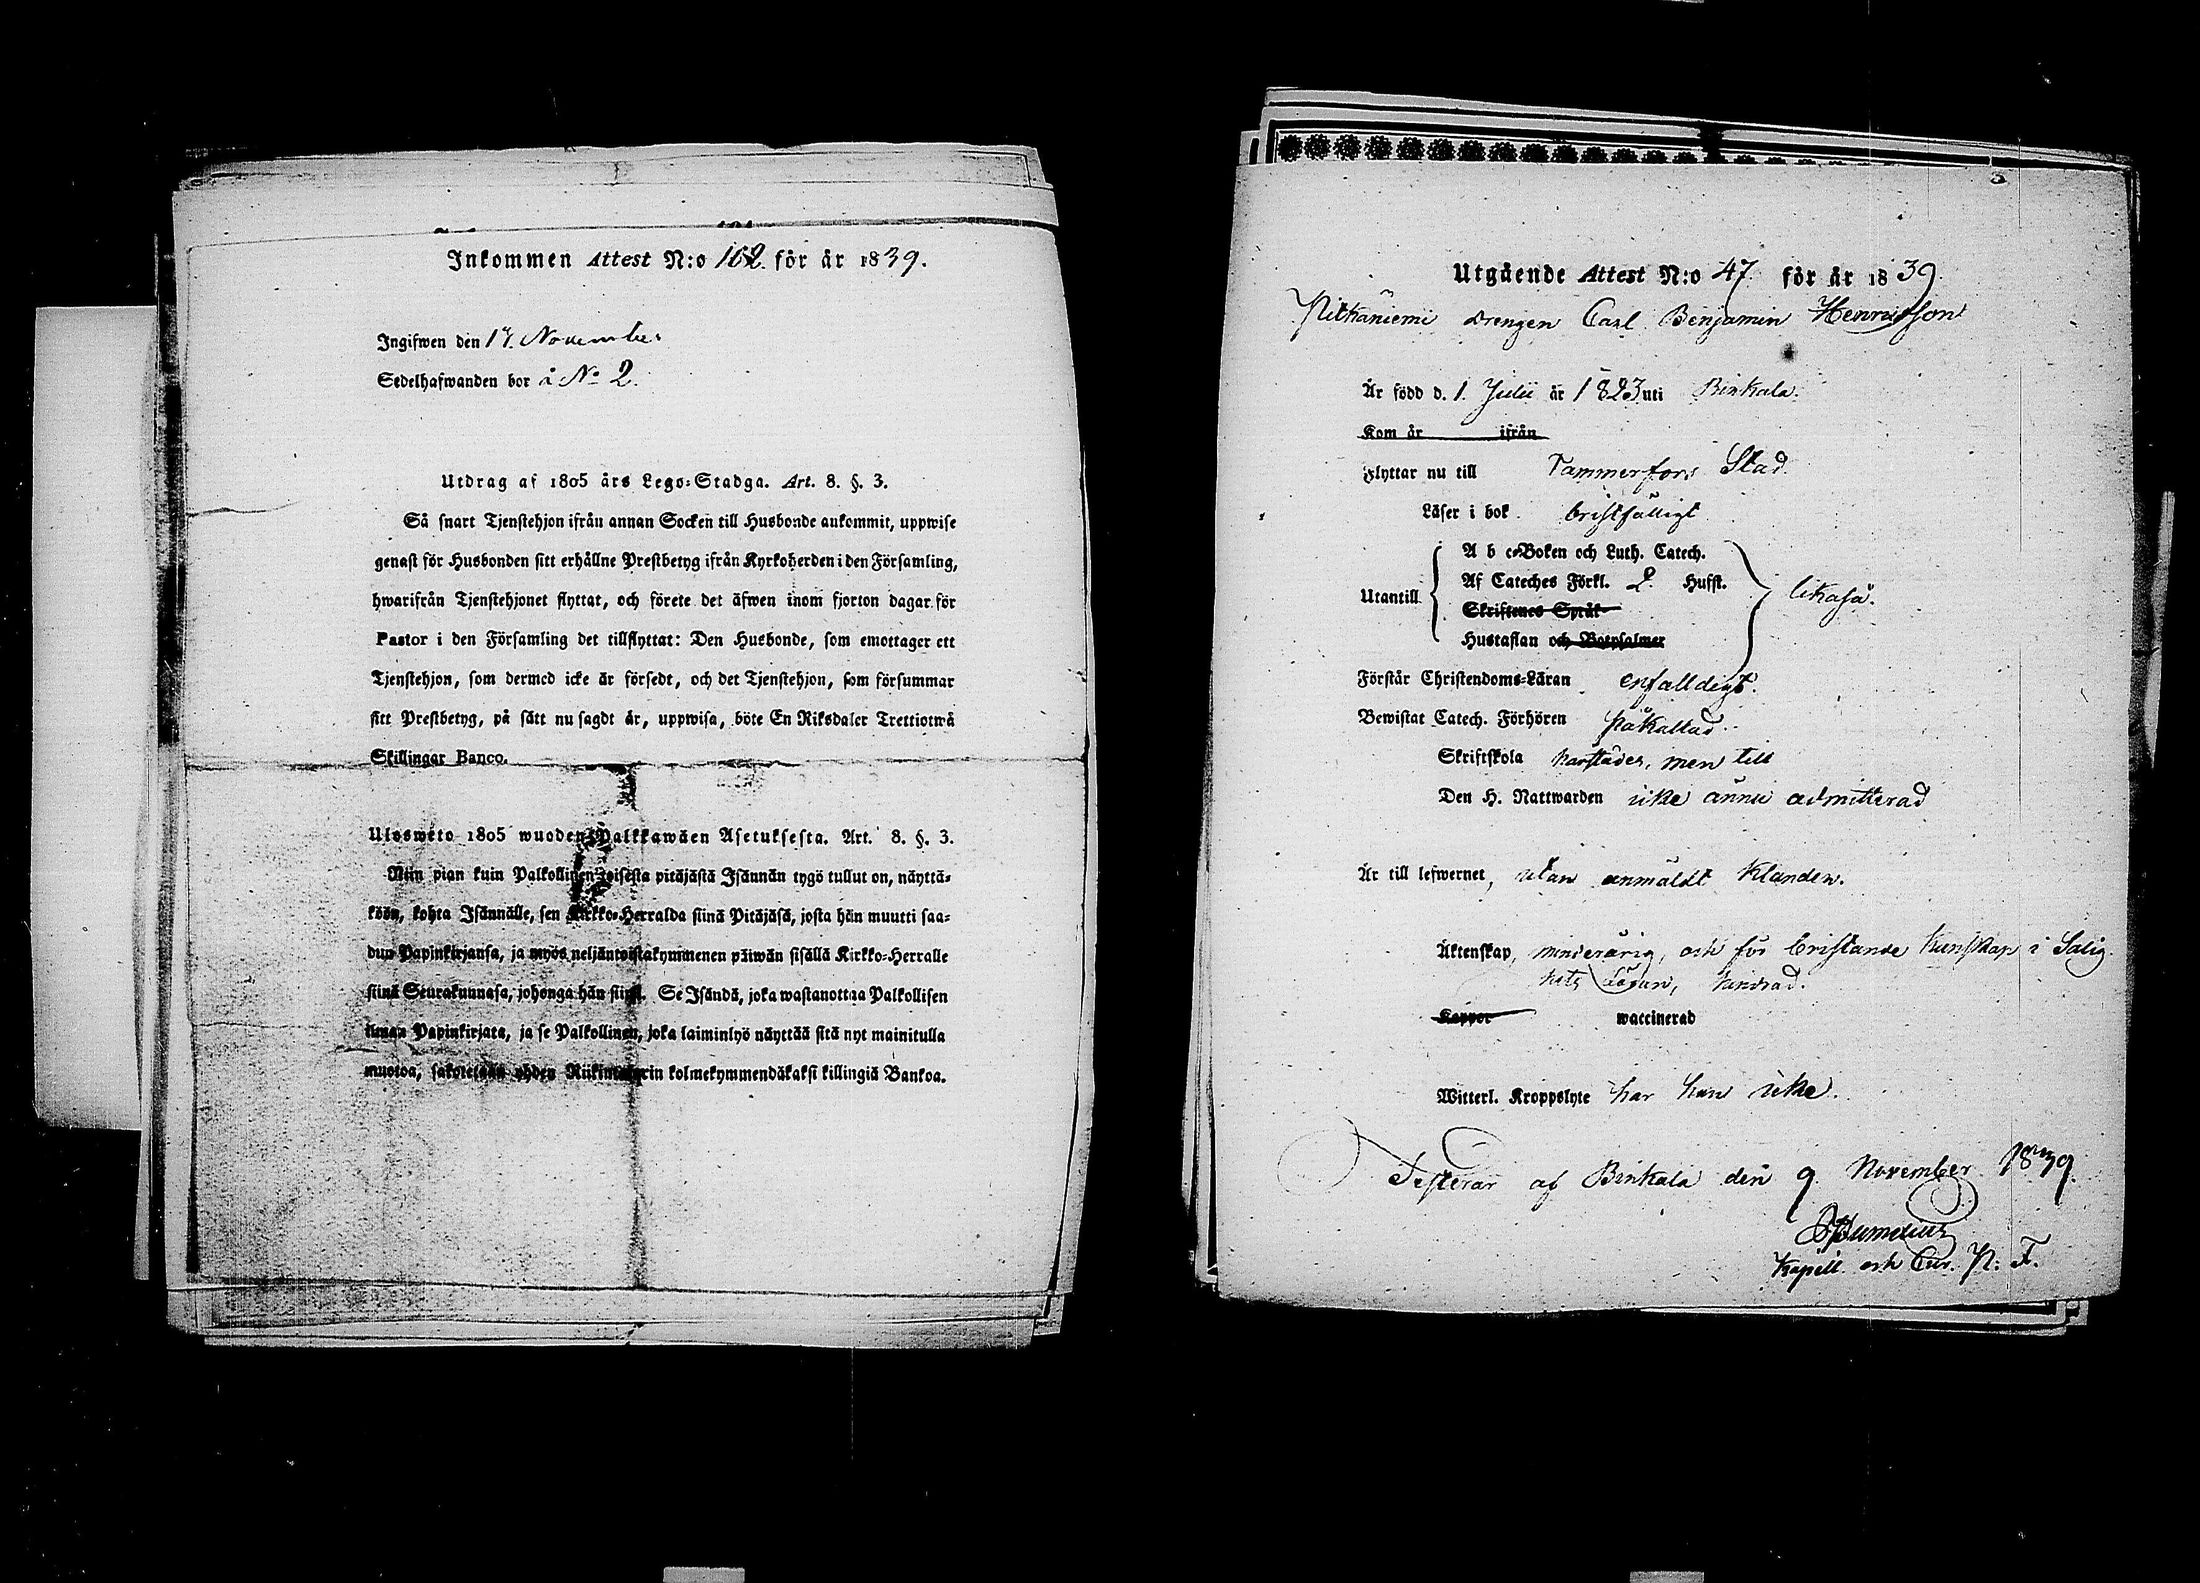 Inkommen Attest N:o 162. för år 1839.
Ingifwen den 17. November
Sedelhafwanden bor å No 2.
Utdrag af 1805 års Lego-Stadga. Art. 8. §. 3.
Så snart Tjenstehjon ifrån annan Socken till Husbonde ankommit, uppwise
genast för Husbonden sitt erhållne Prestbetyg ifrån Kyrkoherden i den Församling,
hwarifrån Tjenstehjonet flyttat, och förete det äfwen inom fjorton dagar för
Pastor i den Församling det tillflyttat: Den Husbonde, som emottager ett
Tjenstehjon, som dermed icke är försedt, och det Tjenstehjon, som försummar
sitt Prestbetyg, på sätt nu sagdt är, uppwisa, böte En Riksdaler Trettiotwå
Skillingar Banco.
Ulosweto 1805 wuoden Palkkawäen Asetuksesta. Art. 8. §. 3.
Niin pian kuin Palkollinen toisesta pitäjästä Isännän tygö tullut on, näyttä-
köön, kohta Isännälle, sen Kirkko-Herralda siinä Pitäjäsä, josta hän muutti saa-
dun Papinkirjansa, ja myös neljäntoistakymmenen päiwän sisällä Kirkko-Herralle
siinä Seurakunnasa, johonga hän siirsi. Se Isändä, joka wastanottaa Palkollisen
ilman Papinkirjata, ja se Palkollinen, joka laiminlyö näyttää sitä nyt mainitulla
muotoa, sakotetaan yhden Riikintalerin kolmekymmendäkaksi killingiä Bankoa.
Utgående Attest N:o 47 för år 1839.
Pitkäniemi Drengen Carl Benjamin Henricsson
Är född d. 1. Julii år 1823 uti Birkala.
Kom år ifrån
Flyttar nu till Tammerfors Stad.
Läser i bok bristfälligt
A b c-Boken och Luth. Catech.
Af Cateches Förkl. 2. Hufst.
Utantill likaså.
Skriftenes Språk
Hustaflan och Botpsalmer
Förstår Christendoms-Läran enfalldigt.
Bewistat Catech. Förhören påkallad.
Skriftskola harstädes, men till
Den H. Nattwarden icke ännu admitterad
Är till lefwernet, utan anmäldt klander.
Äktenskap, minderårig, och för bristande kunskap i Salig-
hets Läran, hindrad.
Koppor waccinerad
Witterl. Kroppslyte har han icke.
Testerar af Birkala den 9 November 1839.
Kapell. och Cur. P. T.